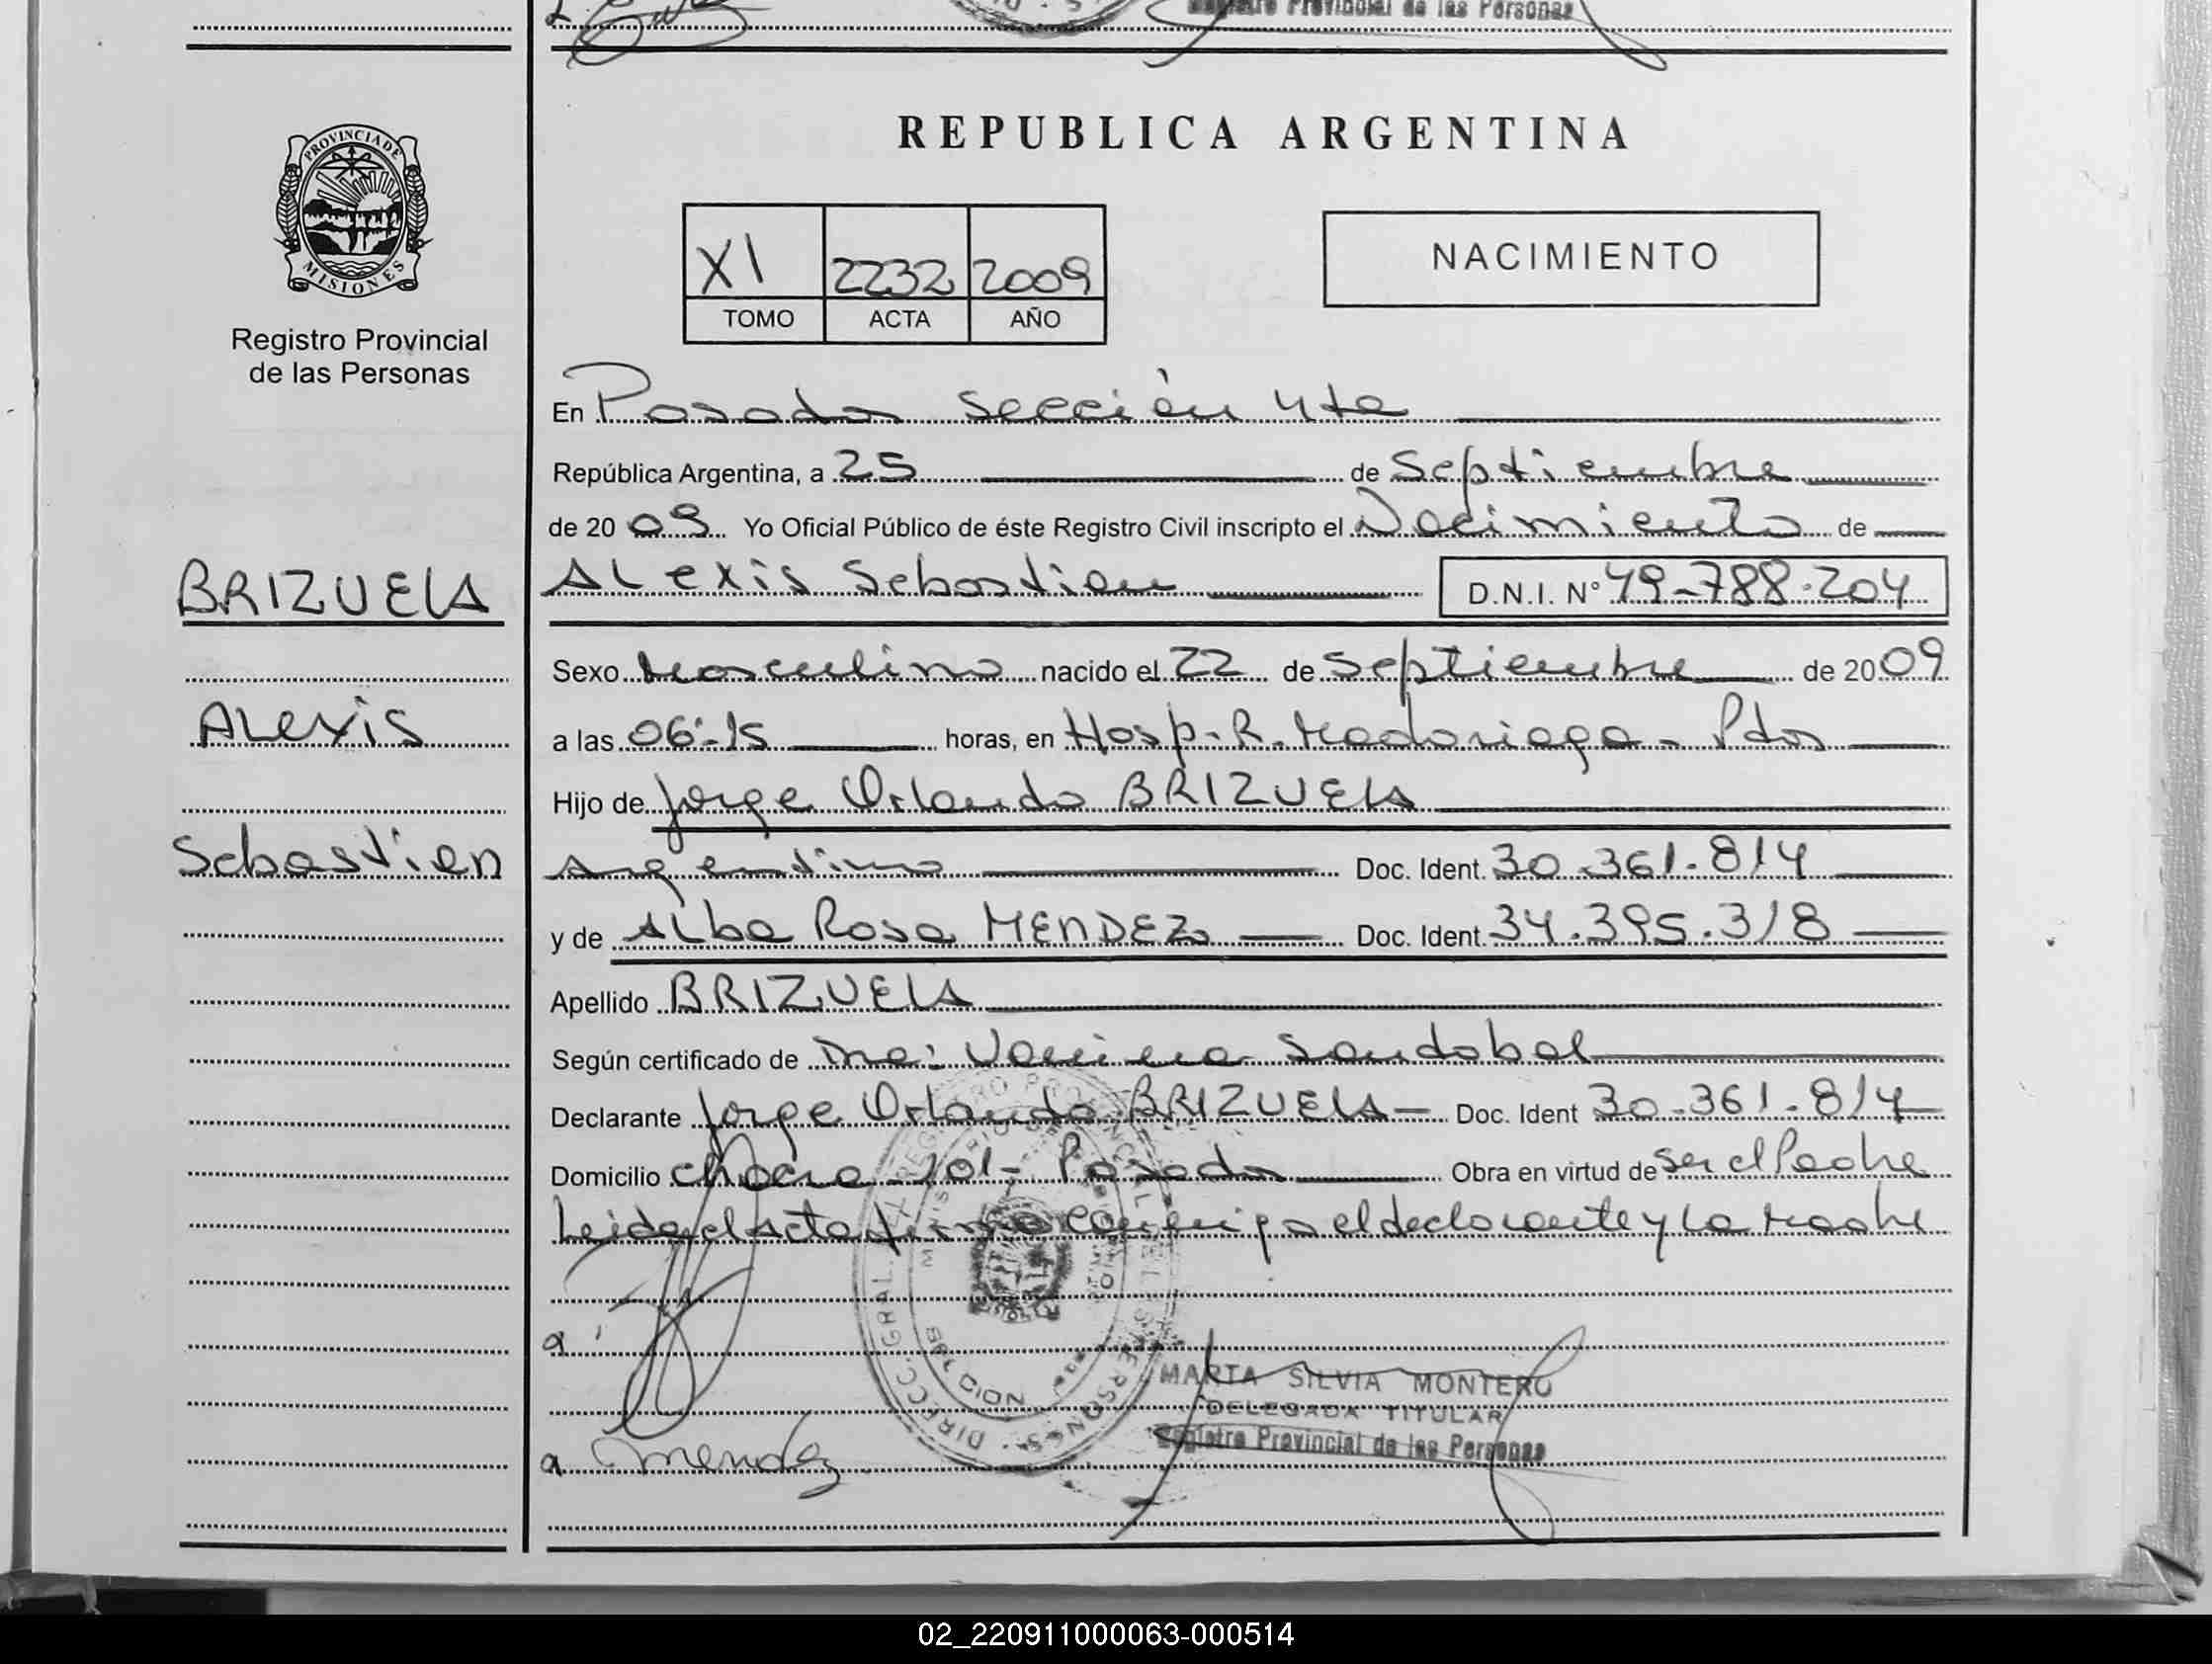 Registro Provincial de las Personas
PROVINCIA DE
MISIONES
Registro Provincial
de las Personas
BRIZUELA
Alexis
Sebastien
REPUBLICA ARGENTINA
XI 2232 2009
TOMO ACTA AÑO
NACIMIENTO
En Posadas Sección 4ta
República Argentina, a 25 de Septiembre
de 2009 Yo Oficial Público de éste Registro Civil inscripto el Nacimiento de
Alexis Sebastien D.N.I. N° 49-788.204
Sexo Masculino nacido el 22 de Septiembre de 2009
a las 06:15 horas, en Hosp. R. Madariaga - Pdas
Hijo de Jorge Orlando BRIZUELA
Argentino Doc. Ident. 30.361.814
y de Alba Rosa MENDEZ Doc. Ident. 34.395.318
Apellido BRIZUELA
Según certificado de Dra: Vanina Sandobal
Declarante Jorge Orlando BRIZUELA Doc. Ident 30.361.814
Domicilio Chacra 101 - Posadas Obra en virtud de Ser el Padre
Leida el acta firma conmigo el declarante y la Madre
MARTA SILVIA MONTERO
DELEGADA TITULAR
Registro Provincial de las Personas
Mendez
02_220911000063-000514